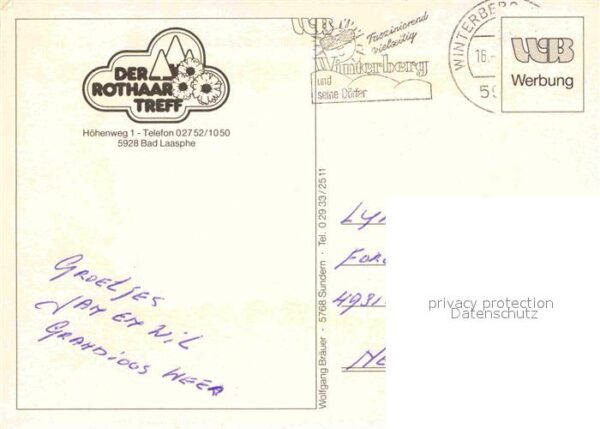 DER
ROTHAAR
TREFF
Höhenweg 1 - Telefon 02752/1050
5928 Bad Laasphe
Groetjes
Jan en Wil
Grandioos weer
Wolfgang Bräuer · 5768 Sundern · Tel. 0 29 33 / 25 11
WB
Faszinierend
vielseitig
Winterberg
und
seine Dörfer
WINTERBERG
16.-
59
WB
Werbung
Ly
For
4931
Ne
privacy protection
Datenschutz